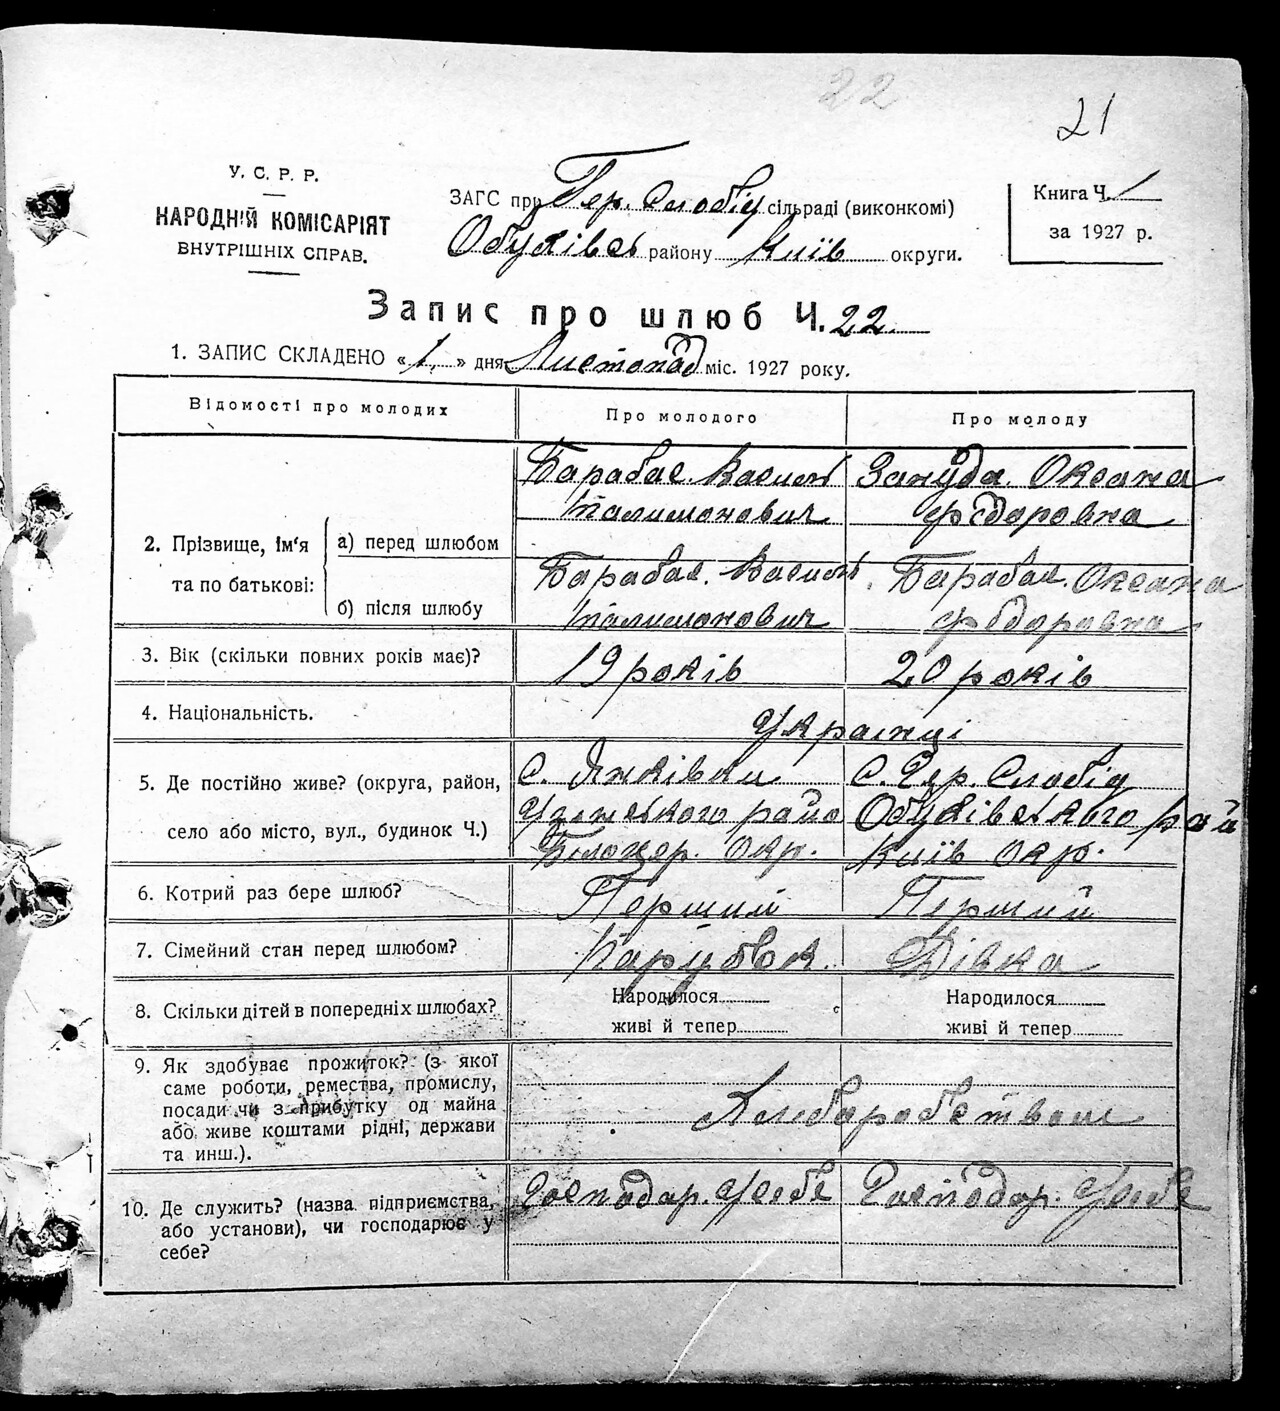 22
21
У. С. Р. Р.
НАРОДНІЙ КОМІСАРІЯТ
ВНУТРІШНІХ СПРАВ.
ЗАГС при Гер. Слобід сільраді (виконкомі)
Обухівсь району Київ округи.
Книга Ч. 1
за 1927 р.
Запис про шлюб Ч. 22
1. ЗАПИС СКЛАДЕНО «1» дня Листопад міс. 1927 року.
Відомості про молодих
Про молодого
Про молоду
2. Прізвище, ім'я та по батькові:
а) перед шлюбом
Барабас. Василь
Талимонович
Зануда. Оксана
Федоровна
б) після шлюбу
Барабас. Василь
Талимонович
Барабас. Оксана
Федоровна
3. Вік (скільки повних років має)?
19 років
20 років
4. Національність.
Українці
5. Де постійно живе? (округа, район,
село або місто, вул., будинок Ч.)
С. Янківки
Узинського райо
Білоцер. Окр.
С. Гер. Слобід
Обухівського рай
Київ Окр.
6. Котрий раз бере шлюб?
Перший
Перший
7. Сімейний стан перед шлюбом?
Парубок
Дівка
8. Скільки дітей в попередніх шлюбах?
Народилося
живі й тепер
Народилося
живі й тепер
9. Як здобуває прожиток? (з якої
саме роботи, ремества, промислу,
посади чи з прибутку од майна
або живе коштами рідні, держави
та инш.).
Хліборобством
10. Де служить? (назва підприємства,
або установи), чи господарює у
себе?
Господар. Усебе
Господар. Усебе